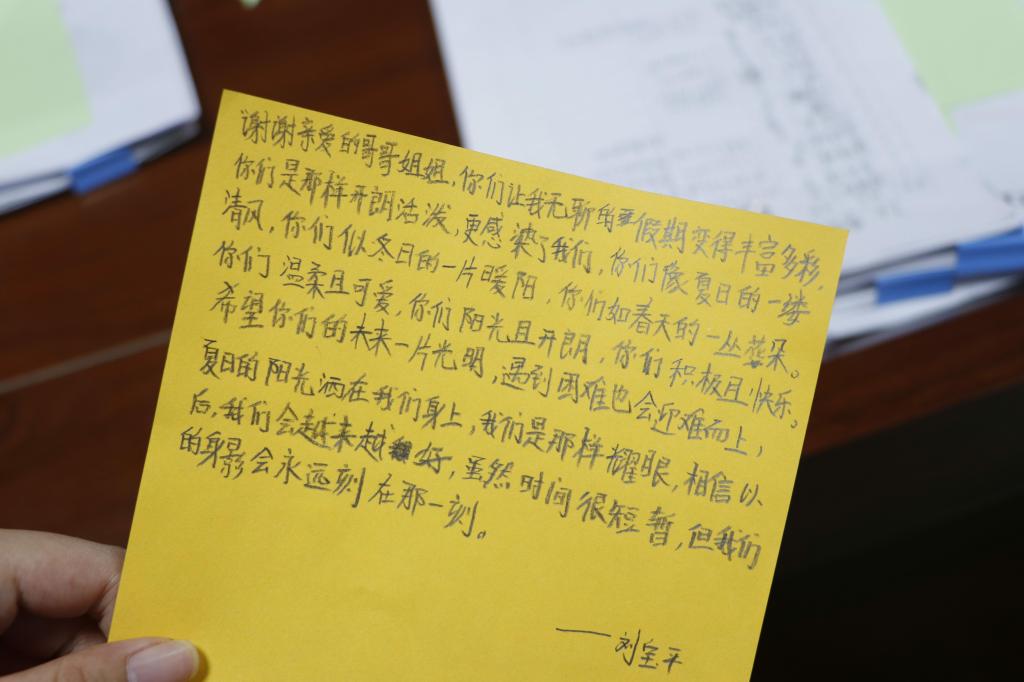 谢谢亲爱的哥哥姐姐，你们让我无聊的假期变得丰富多彩，
你们是那样开朗活泼，更感染了我们，你们像夏日的一缕
清风，你们似冬日的一片暖阳，你们如春天的一丛花朵。
你们温柔且可爱，你们阳光且开朗，你们积极且快乐。
希望你们的未来一片光明，遇到困难也会迎难而上，
夏日的阳光洒在我们身上，我们是那样耀眼，相信以
后，我们会越来越好，虽然时间很短暂，但我们
的身影会永远刻在那一刻。
——刘宝平